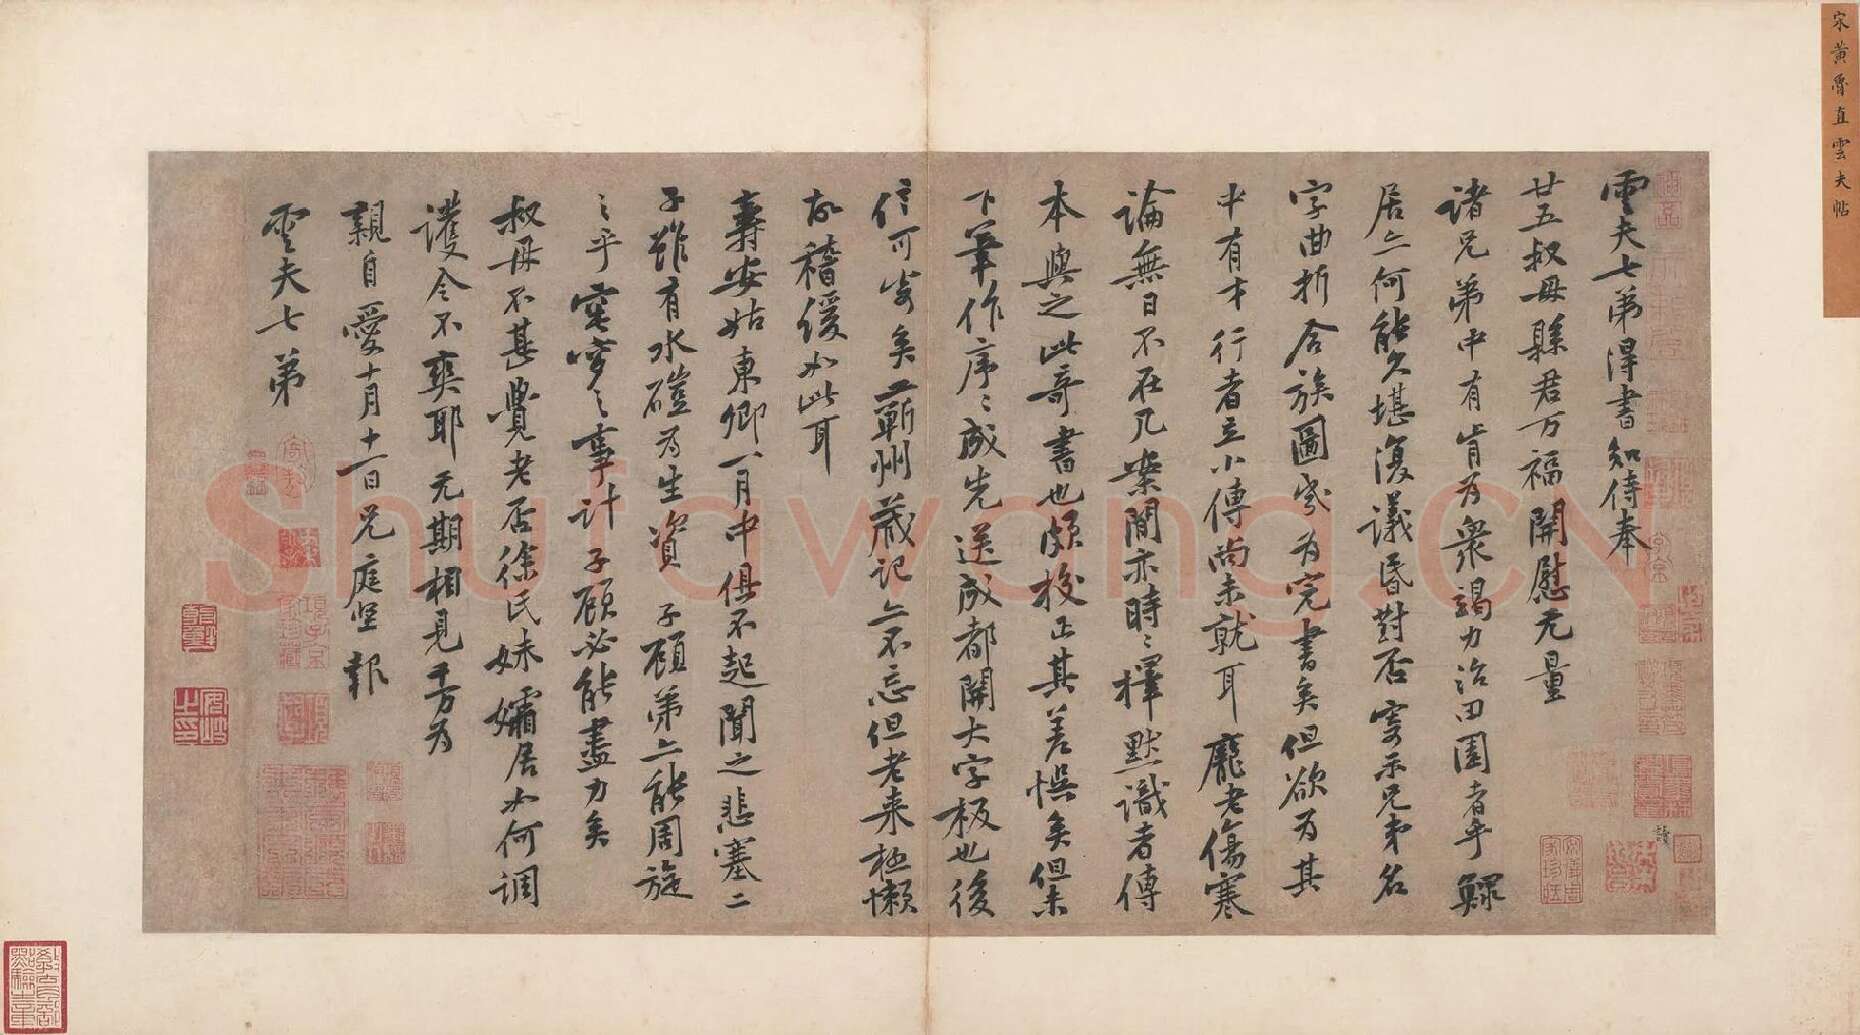 宋黃魯直雲夫帖
雲夫七弟得書知侍奉
廿五叔母縣君万福開慰无量
諸兄弟中有肯為衆竭力治田園者乎鰥
居亦何能久堪復議昏對否寄示兄弟名
字曲折合族圖岁為完書矣但欲為其
中有才行者立小傳尚未就耳龐老傷寒
論無日不在几案間亦時〻擇默識者傳
本與之此奇書也頗校正其差悞矣但未
下筆作序〻成先送成都開大字板也後
信可寄矣蘄州藏記亦不忘但老来極懶
故稽緩如此耳
壽安姑東卿一月中俱不起聞之悲塞二
子雖有水磑為生資子顧弟亦能周旋
之乎窀穸之事計子顧必能盡力矣
叔母不甚覺老否徐氏妹孀居如何調
護令不爽耶元期相見千万為
親自愛十月十一日兄庭堅報
雲夫七弟
Shufawang.CN